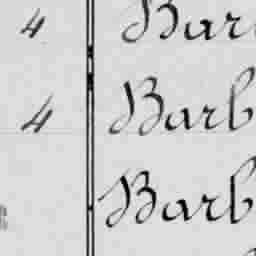 4 Bar
4 Barb
Barb